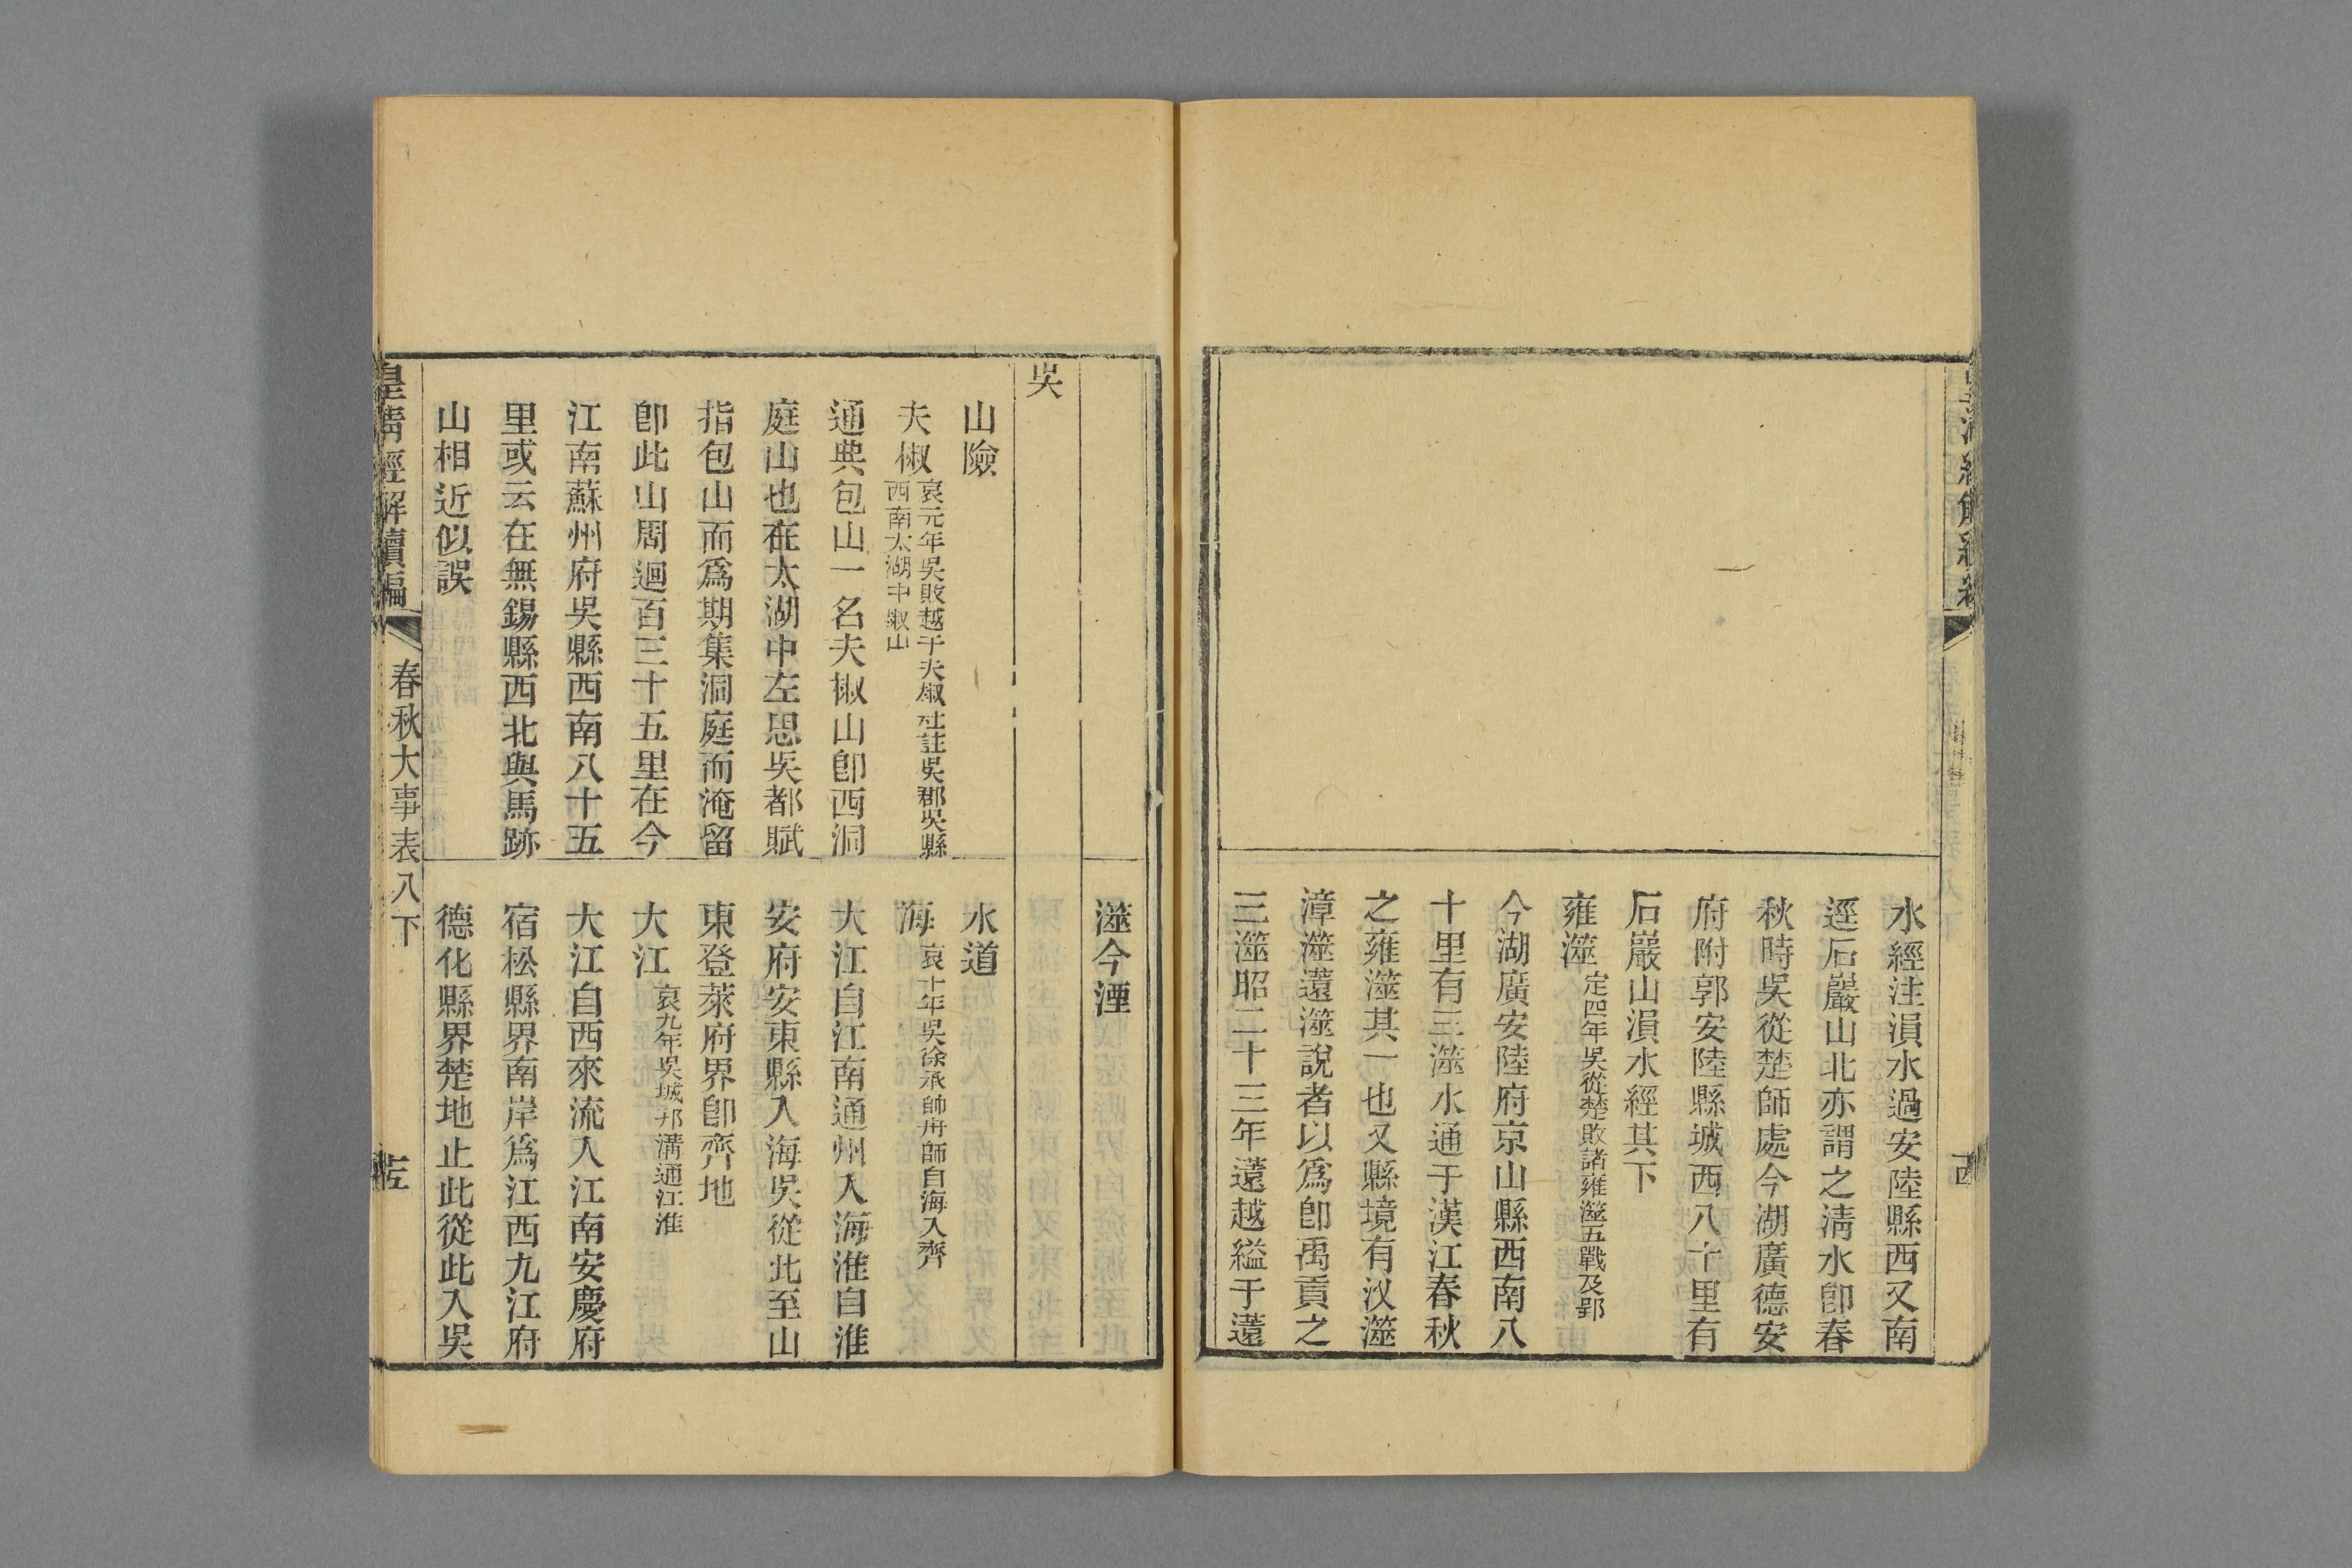 水經注溳水過安陸縣西又南
逕石巖山北亦謂之清水卽春
秋時吳從楚師處今湖廣德安
府附郭安陸縣城西八十里有
石巖山溳水經其下
雍澨定四年吳從楚敗諸雍澨五戰及郢
今湖廣安陸府京山縣西南八
十里有三澨水通于漢江春秋
之雍澨其一也又縣境有汊澨
漳澨薳澨說者以爲卽禹貢之
三澨昭二十三年薳越縊于薳
澨今湮
吳
山險
夫椒哀元年吳敗越于夫椒杜註吳郡吳縣
西南太湖中椒山
通典包山一名夫椒山卽西洞
庭山也在太湖中左思吳都賦
指包山而爲期集洞庭而淹留
卽此山周迴百三十五里在今
江南蘇州府吳縣西南八十五
里或云在無錫縣西北與馬跡
山相近似誤
水道
海哀十年吳徐承帥舟師自海入齊
大江自江南通州入海淮自淮
安府安東縣入海吳從此至山
東登萊府界卽齊地
大江哀九年吳城邗溝通江淮
大江自西來流入江南安慶府
宿松縣界南岸爲江西九江府
德化縣界楚地止此從此入吳
皇清經解續編
春秋大事表八下